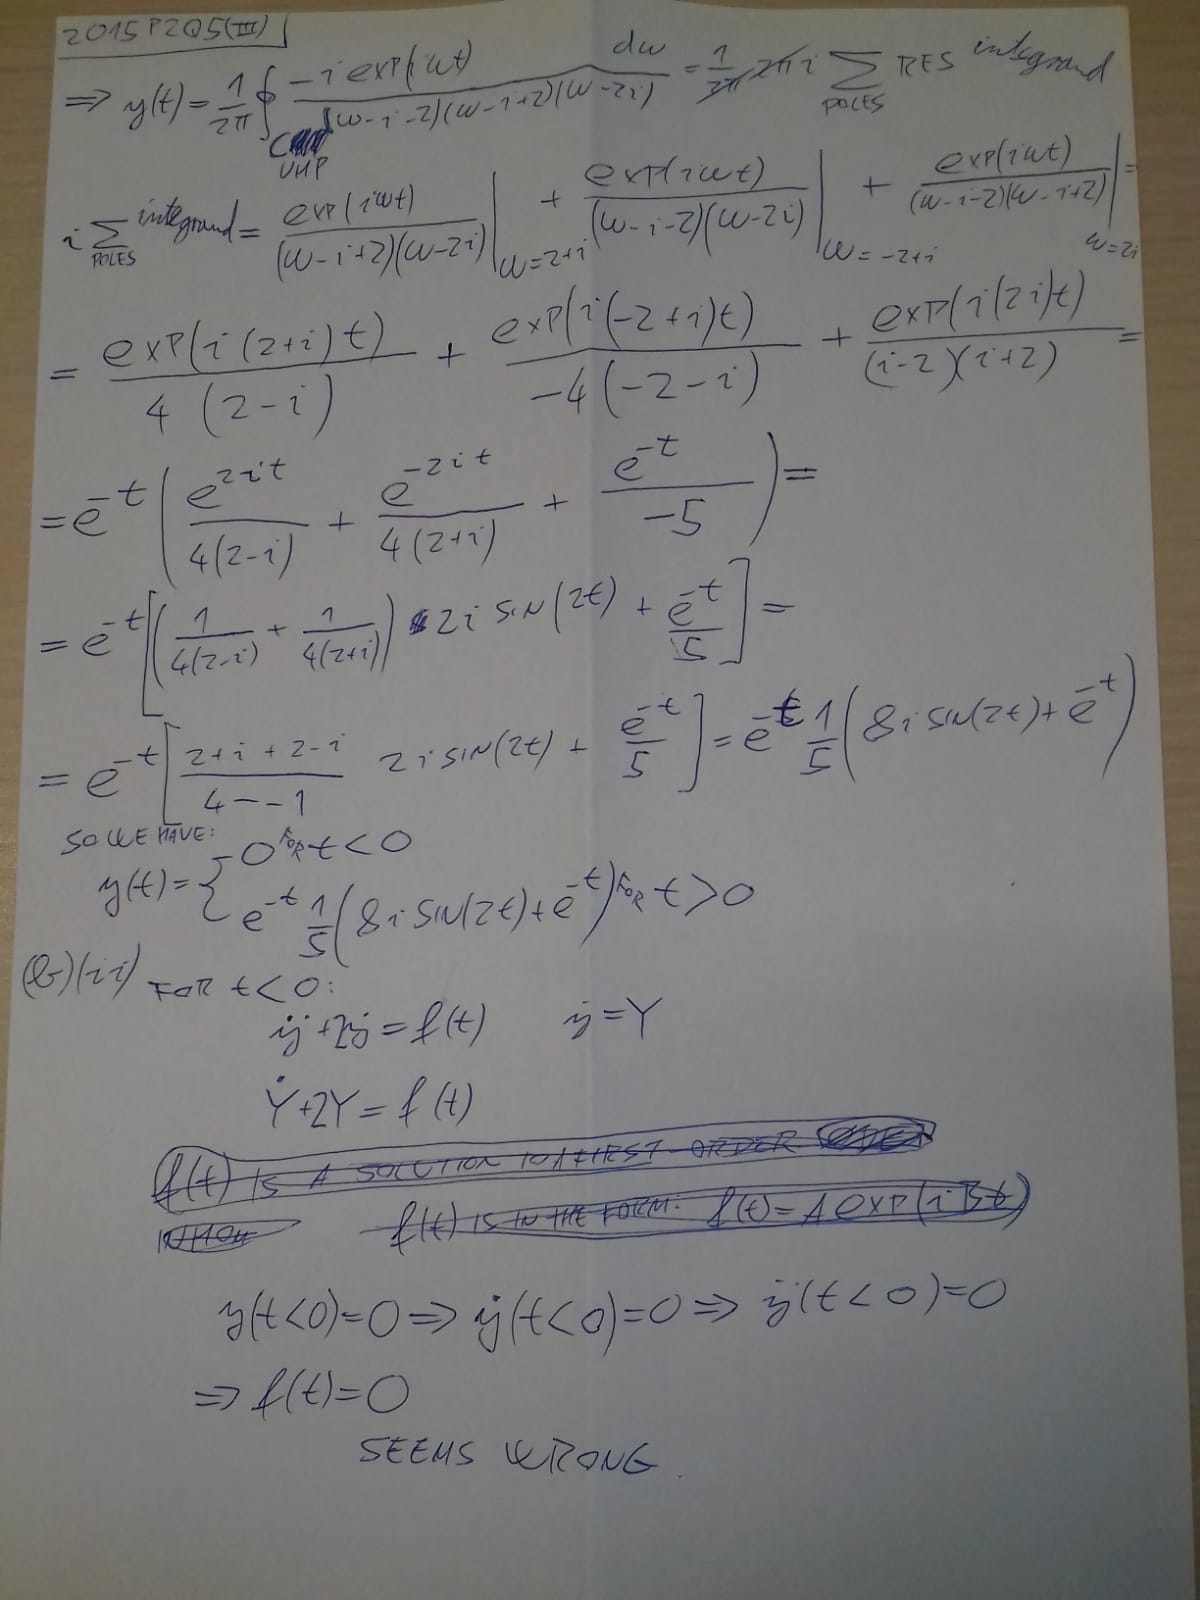 2015P2Q5(III)
=> y(t) = 1/2π ∮_{C UHP} -i exp(iωt) dω / (ω-i-2)(ω-i+2)(ω-2i) = 1/2π 2πi Σ_{POLES} RES integrand
i Σ_{POLES} integrand = exp(iωt)/(ω-i+2)(ω-2i) |_{ω=2+i} + exp(iωt)/(ω-i-2)(ω-2i) |_{ω=-2+i} + exp(iωt)/(ω-i-2)(ω-i+2) |_{ω=2i} =
= exp(i(2+i)t)/4(2-i) + exp(i(-2+i)t)/-4(-2-i) + exp(i(2i)t)/(i-2)(i+2) =
= e^{-t}( e^{2it}/4(2-i) + e^{-2it}/4(2+i) + e^{-t}/-5 ) =
= e^{-t}[ ( 1/4(2-i) + 1/4(2+i) ) 2i SIN(2t) + e^{-t}/5 ] =
= e^{-t}[ 2+i+2-i/4--1 2i SIN(2t) + e^{-t}/5 ] = e^{-t} 1/5 ( 8i SIN(2t) + e^{-t} )
SO WE HAVE:
y(t) = { 0 FOR t<0
e^{-t} 1/5 (8i SIN(2t) + e^{-t}) FOR t>0
(b)(ii) FOR t<0:
ÿ+2ẏ = f(t) ẏ=Y
Ẏ+2Y = f(t)
f(t) IS A SOLUTION TO A FIRST-ORDER
f(t) IS IN THE FORM: f(t) = A exp(iBt)
y(t<0)=0 => ẏ(t<0)=0 => ÿ(t<0)=0
=> f(t)=0
SEEMS WRONG.